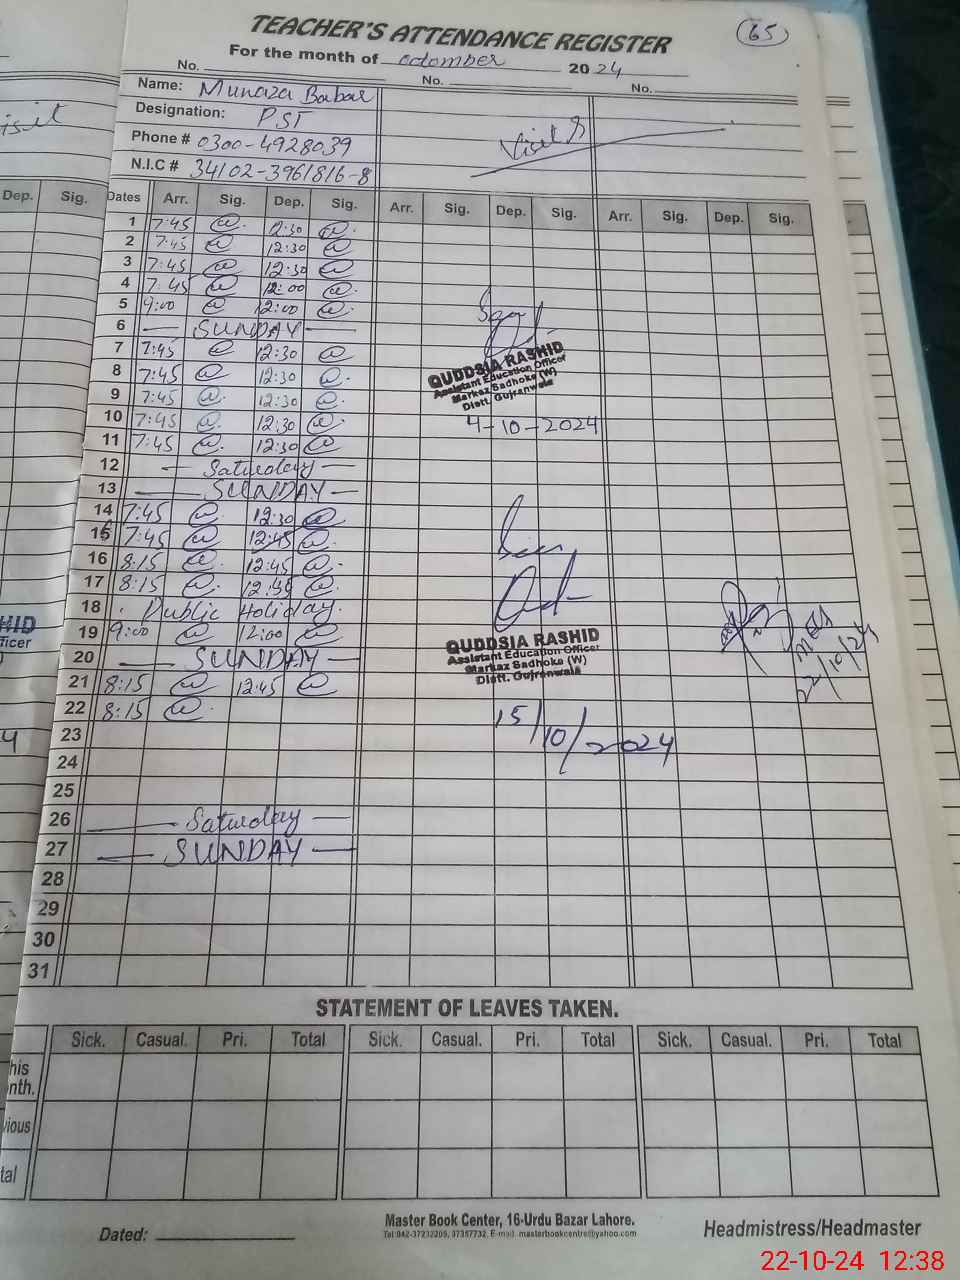 TEACHER'S ATTENDANCE REGISTER
65
For the month of octomber 2024
No. No. No.
Name: Munaza Babar
Designation: PST
Phone # 0300-4928039
N.I.C # 34102-3961816-8
Visit
isit
Dep. Sig. Dates Arr. Sig. Dep. Sig. Arr. Sig. Dep. Sig. Arr. Sig. Dep. Sig.
1 7:45 @ 12:30 @
2 7:45 @ 12:30 @
3 7:45 @ 12:30 @
4 7:45 @ 12:00 @
5 9:00 @ 12:00 @
6 — SUNDAY —
7 7:45 @ 12:30 @
8 7:45 @ 12:30 @
9 7:45 @ 12:30 @
10 7:45 @ 12:30 @
11 7:45 @ 12:30 @
QUDDSIA RASHID
Assistant Education Officer
Markaz Sadhoke (W)
Distt. Gujranwala
4-10-2024
12 — Saturday —
13 — SUNDAY —
14 7:45 @ 12:30 @
15 7:45 @ 12:45 @
16 8:15 @ 12:45 @
17 8:15 @ 12:45 @
18 Public Holiday.
19 9:00 @ 12:00 @
20 — SUNDAY —
21 8:15 @ 12:45 @
22 8:15 @
QUDDSIA RASHID
Assistant Education Officer
Markaz Sadhoke (W)
Distt. Gujranwala
15/10/2024
22/10/24
HID
ficer
23
24
25
26 — Saturday —
27 — SUNDAY —
28
29
30
31
STATEMENT OF LEAVES TAKEN.
Sick. Casual. Pri. Total Sick. Casual. Pri. Total Sick. Casual. Pri. Total
his
nth.
vious
tal
Dated:
Master Book Center, 16-Urdu Bazar Lahore.
Tel:042-37232209, 37357732, E-mail: masterbookcentre@yahoo.com
Headmistress/Headmaster
22-10-24 12:38